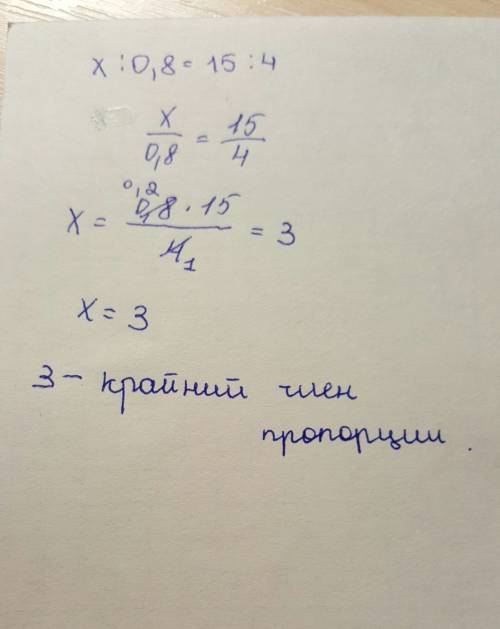 x : 0,8 = 15 : 4
x/0,8 = 15/4
x = 0,8 · 15 / 4 = 3
0,2
1
x = 3
3 – крайний член
пропорции.